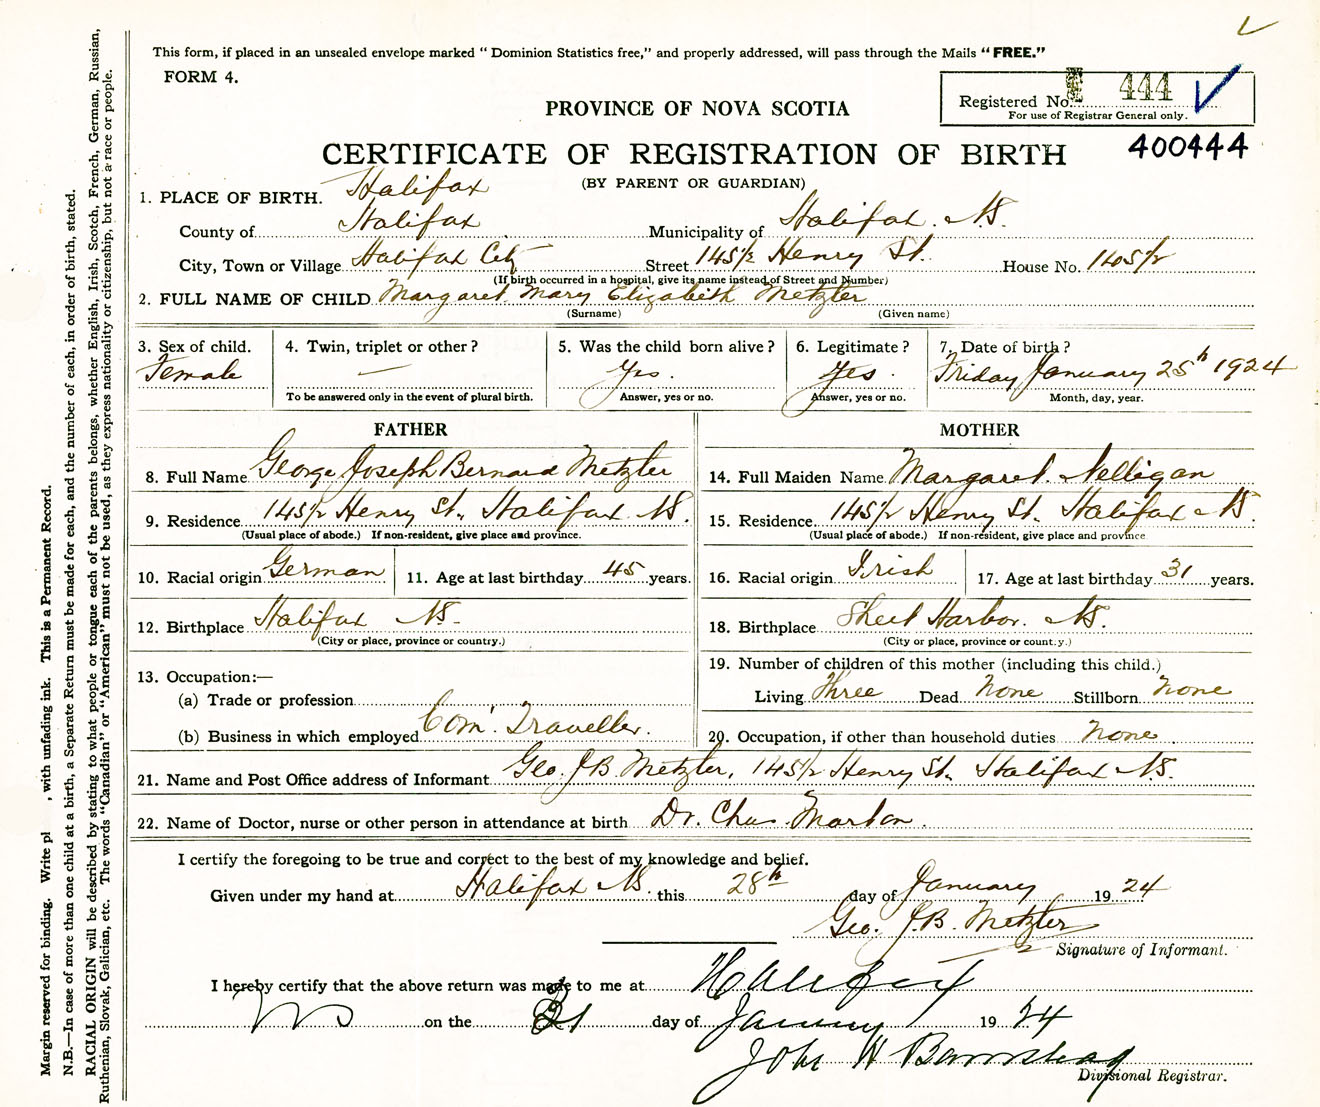 This form, if placed in an unsealed envelope marked “ Dominion Statistics free,” and properly addressed, will pass through the Mails “ FREE.”
FORM 4.
Registered No. 444
For use of Registrar General only.
PROVINCE OF NOVA SCOTIA
400444
CERTIFICATE OF REGISTRATION OF BIRTH
(BY PARENT OR GUARDIAN)
1. PLACE OF BIRTH. Halifax
County of Halifax Municipality of Halifax. N.S.
City, Town or Village Halifax City Street 145½ Henry St. House No. 145½
(If birth occurred in a hospital, give its name instead of Street and Number)
2. FULL NAME OF CHILD Margaret Mary Elizabeth Metzler
(Surname) (Given name)
3. Sex of child. 4. Twin, triplet or other? 5. Was the child born alive? 6. Legitimate? 7. Date of birth?
Female — Yes. Yes. Friday January 25th 1924
To be answered only in the event of plural birth. Answer, yes or no. Answer, yes or no. Month, day, year.
FATHER
8. Full Name George Joseph Bernard Metzler
9. Residence 145½ Henry St., Halifax N.S.
(Usual place of abode.) If non-resident, give place and province.
10. Racial origin German 11. Age at last birthday 45 years.
12. Birthplace Halifax N.S.
(City or place, province or country.)
13. Occupation:—
(a) Trade or profession
(b) Business in which employed Com' Traveller.
MOTHER
14. Full Maiden Name Margaret. Nelligan
15. Residence 145½ Henry St. Halifax N.S.
(Usual place of abode.) If non-resident, give place and province
16. Racial origin Irish 17. Age at last birthday 31 years.
18. Birthplace Sheet Harbor. N.S.
(City or place, province or country.)
19. Number of children of this mother (including this child.)
Living Three Dead None Stillborn None
20. Occupation, if other than household duties None
21. Name and Post Office address of Informant Geo. J.B. Metzler, 145½ Henry St., Halifax N.S.
22. Name of Doctor, nurse or other person in attendance at birth Dr. Chas. Morton.
I certify the foregoing to be true and correct to the best of my knowledge and belief.
Given under my hand at Halifax N.S. this 28th day of January 1924
Geo. J.B. Metzler
Signature of Informant.
I hereby certify that the above return was made to me at Halifax
NS on the 31 day of January 1924
John H Barnstead
Divisional Registrar.
Margin reserved for binding. Write pl , with unfading ink. This is a Permanent Record.
N.B.—In case of more than one child at a birth, a Separate Return must be made for each, and the number of each, in order of birth, stated.
RACIAL ORIGIN will be described by stating to what people or tongue each of the parents belongs, whether English, Irish, Scotch, French, German, Russian,
Ruthenian, Slovak, Galician, etc. The words “Canadian” or “American” must not be used, as they express nationality or citizenship, but not a race or people.